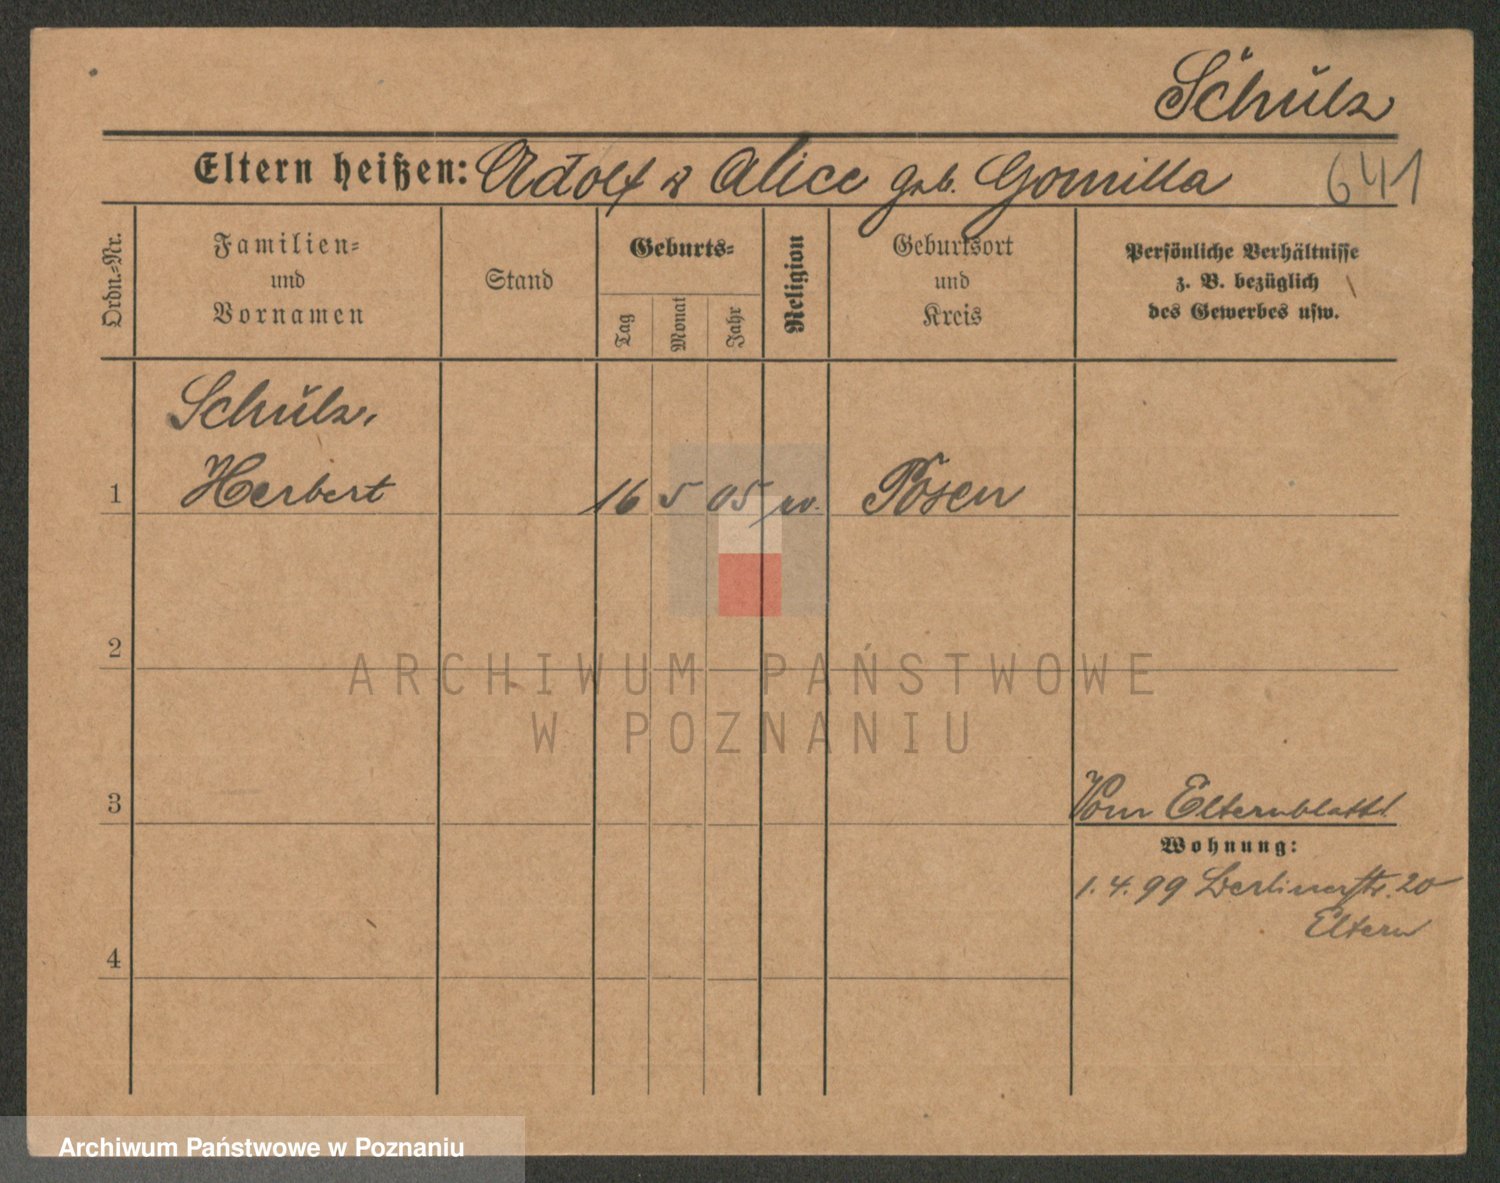 Schulz
Eltern heißen: Adolf u Alice geb. Gomilla 641
Ordn.-Nr.
Familien-
und
Vornamen
Stand
Geburts-
Tag
Monat
Jahr
Religion
Geburtsort
und
Kreis
Persönliche Verhältnisse
z. B. bezüglich
des Gewerbes usw.
Schulz,
1 Herbert 16 5 05 ev. Posen
2
ARCHIWUM PAŃSTWOWE
W POZNANIU
3 Vom Elternblatt!
Wohnung:
1.4.99 Berlinerstr. 20
Eltern
4
Archiwum Państwowe w Poznaniu